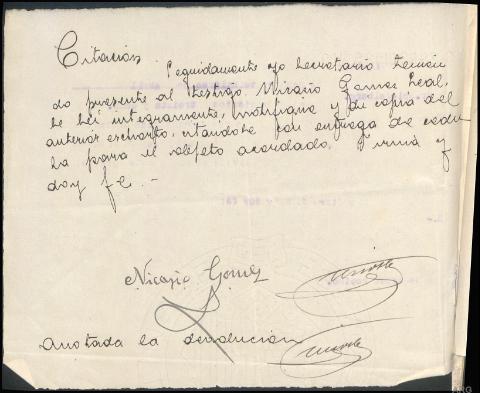 Citación. Seguidamente yo Secretario teniendo
do presente al testigo Nicasio Gomez Leal,
le leí integramente, notifiqué y di copia del
anterior exhorto, citandole con entrega de cedu
la para el objeto acordado. Firma y
doy fe.-
Nicasio Gomez
Anotada la devolucion